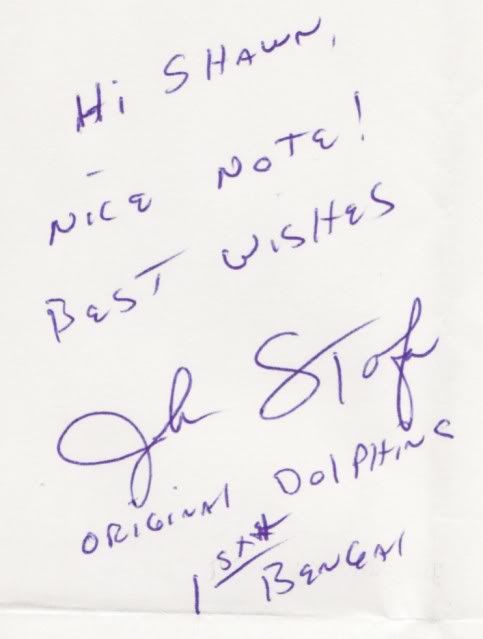 Hi SHAWN,
NICE NOTE!
BEST WISHES
John Stofa
ORIGINAL DOLPHINS
1st# BENGAL